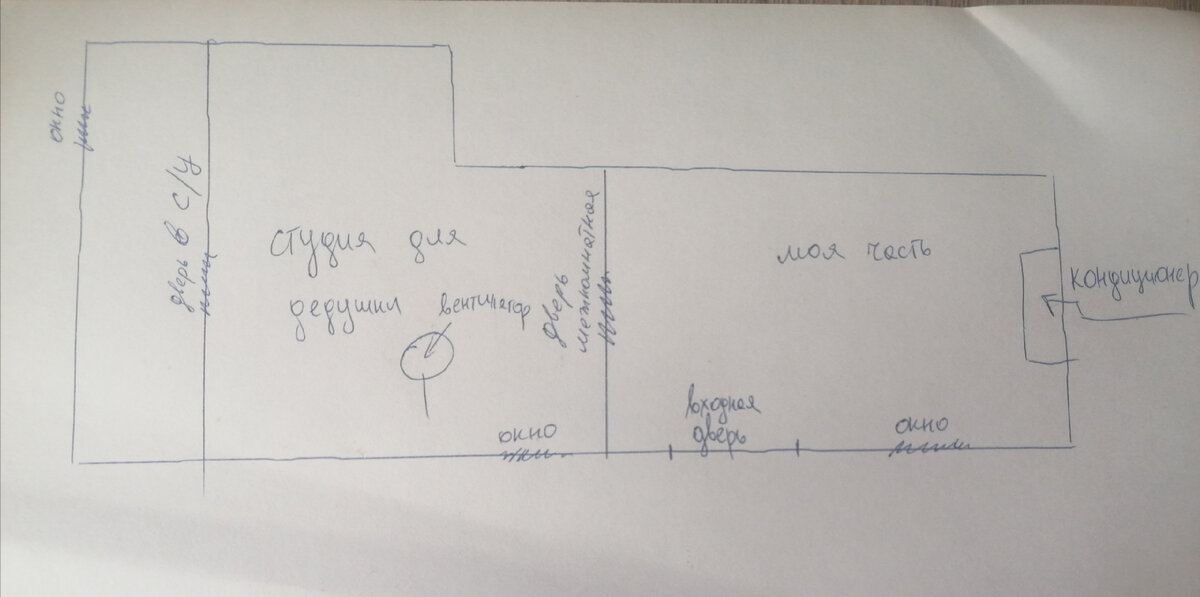 окно
дверь в с/у
студия для
дедушки
вентилятор
дверь
межкомнатная
окно
моя часть
входная
дверь
окно
кондиционер